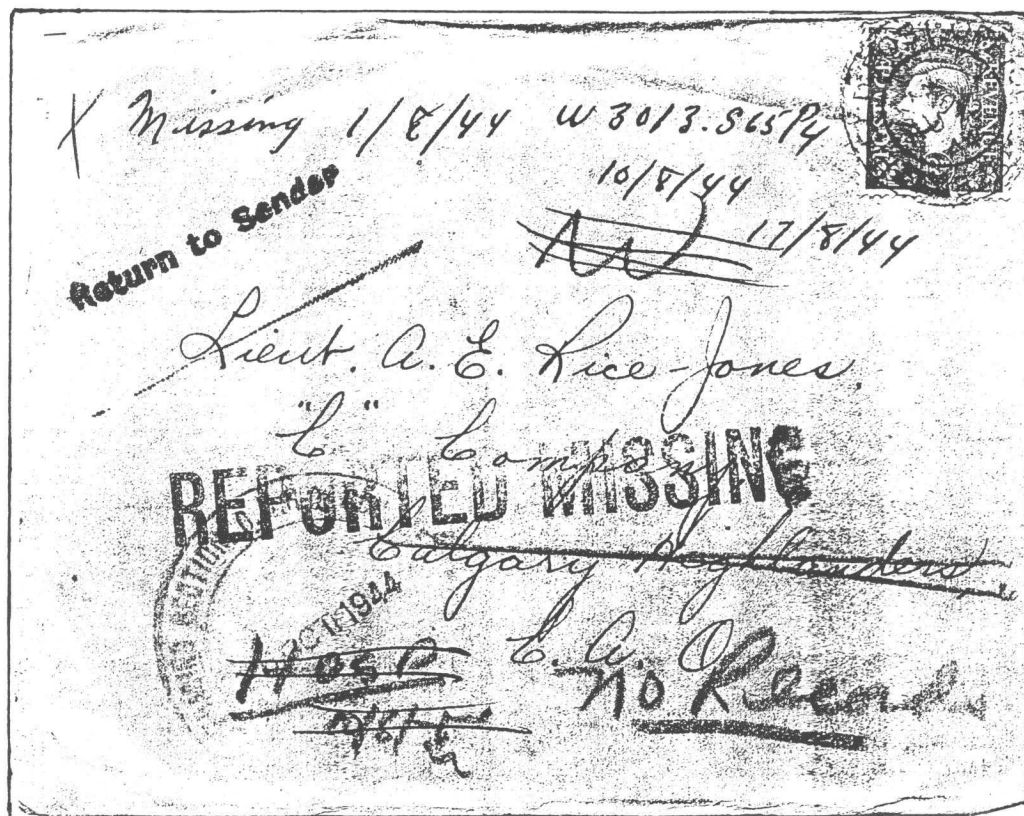 X Missing 1/8/44 W3013.S65Py
10/8/44
17/8/44
Return to Sender
W
Lieut. A. E. Rice-Jones.
"C" Company
REPORTED MISSING
Calgary Highlanders
C. A. O.
OCT 1 1944
Hosp
no Record